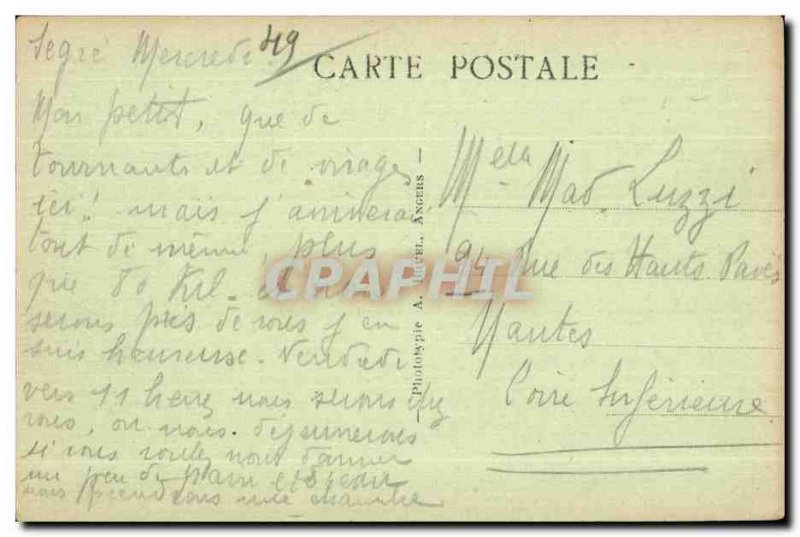 Segré Mercredi 49
CARTE POSTALE
Mon petit, que de
tournants et de virages
ici! mais j'arriverai
tout de même, plus
que 80 Kil. et nous
serons près de vous j'en
suis heureuse. Vendredi
vers 11 heure nous serons chez
vous, où nous déjeunerons
si vous voulez nous donner
un peu de pain et d'eau
nous prendrons une chambre
Phototypie A. BRUEL, ANGERS
Mad. Luzzi
94 Rue des Hauts Pavés
Nantes
Loire Inférieure
CPAPHIL